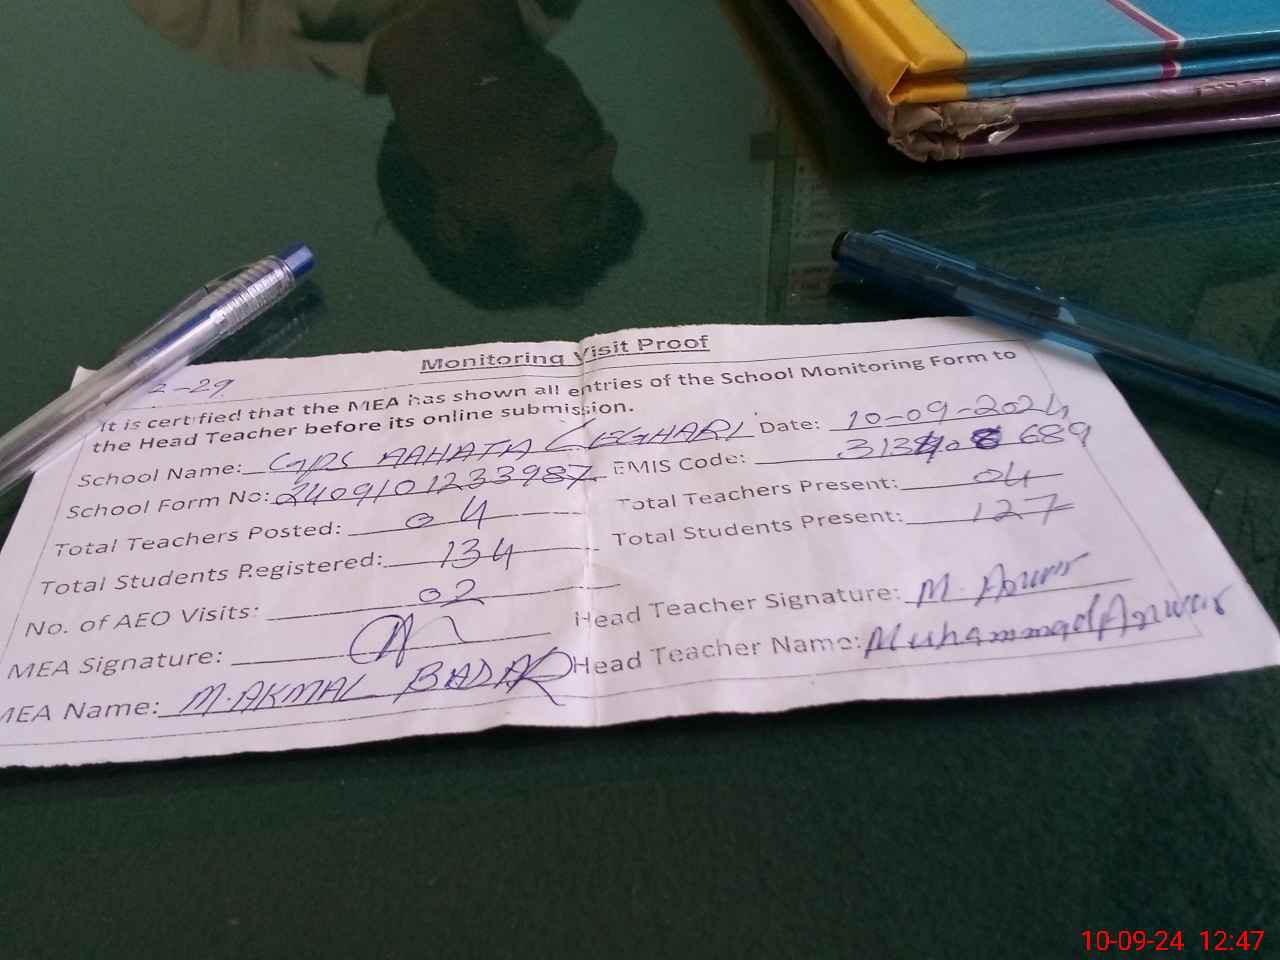 Monitoring Visit Proof
2-29
It is certified that the MEA has shown all entries of the School Monitoring Form to
the Head Teacher before its online submission.
School Name: GPS AAHATA LEGHARI Date: 10-09-2024
School Form No: 2409101233987 EMIS Code: 689
Total Teachers Posted: 04 Total Teachers Present: 04
Total Students Registered: 134 Total Students Present: 127
No. of AEO Visits: 02
MEA Signature: Head Teacher Signature: M. Anwar
MEA Name: M. AKMAL BADAR Head Teacher Name: Muhammad Anwar
10-09-24 12:47